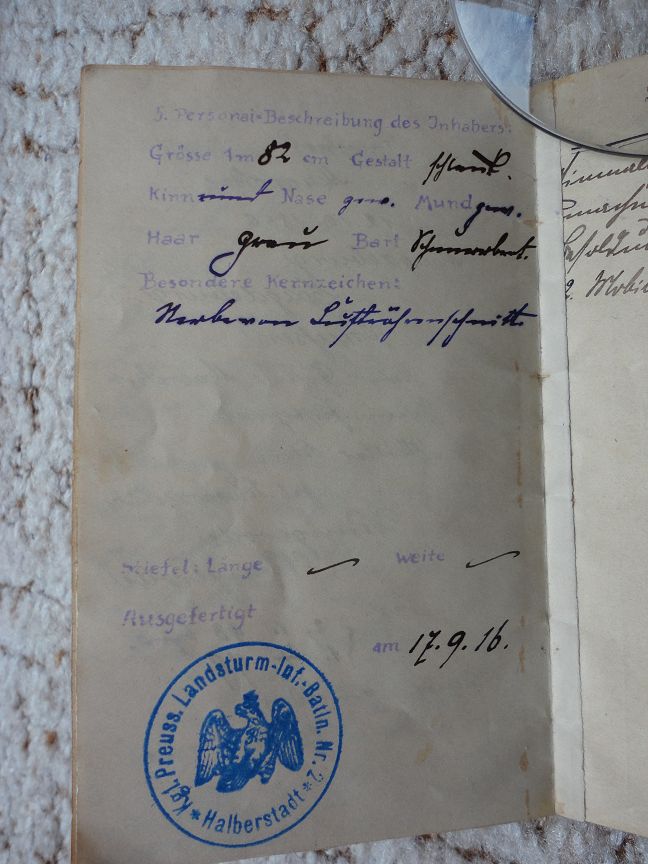 5. Personal-Beschreibung des Inhabers:
Grösse 1m 82 cm Gestalt schlank.
Kinn rund Nase gew. Mund gew.
Haar grau Bart Schnurrbart.
Besondere Kennzeichen:
Narbe von Luftröhrenschnitt.
Stiefel: Länge – Weite –
Ausgefertigt
am 17.9.16.
Kgl. Preuss. Landsturm-Inf.-Batln. Nr. 2
* Halberstadt *
2. Mobi